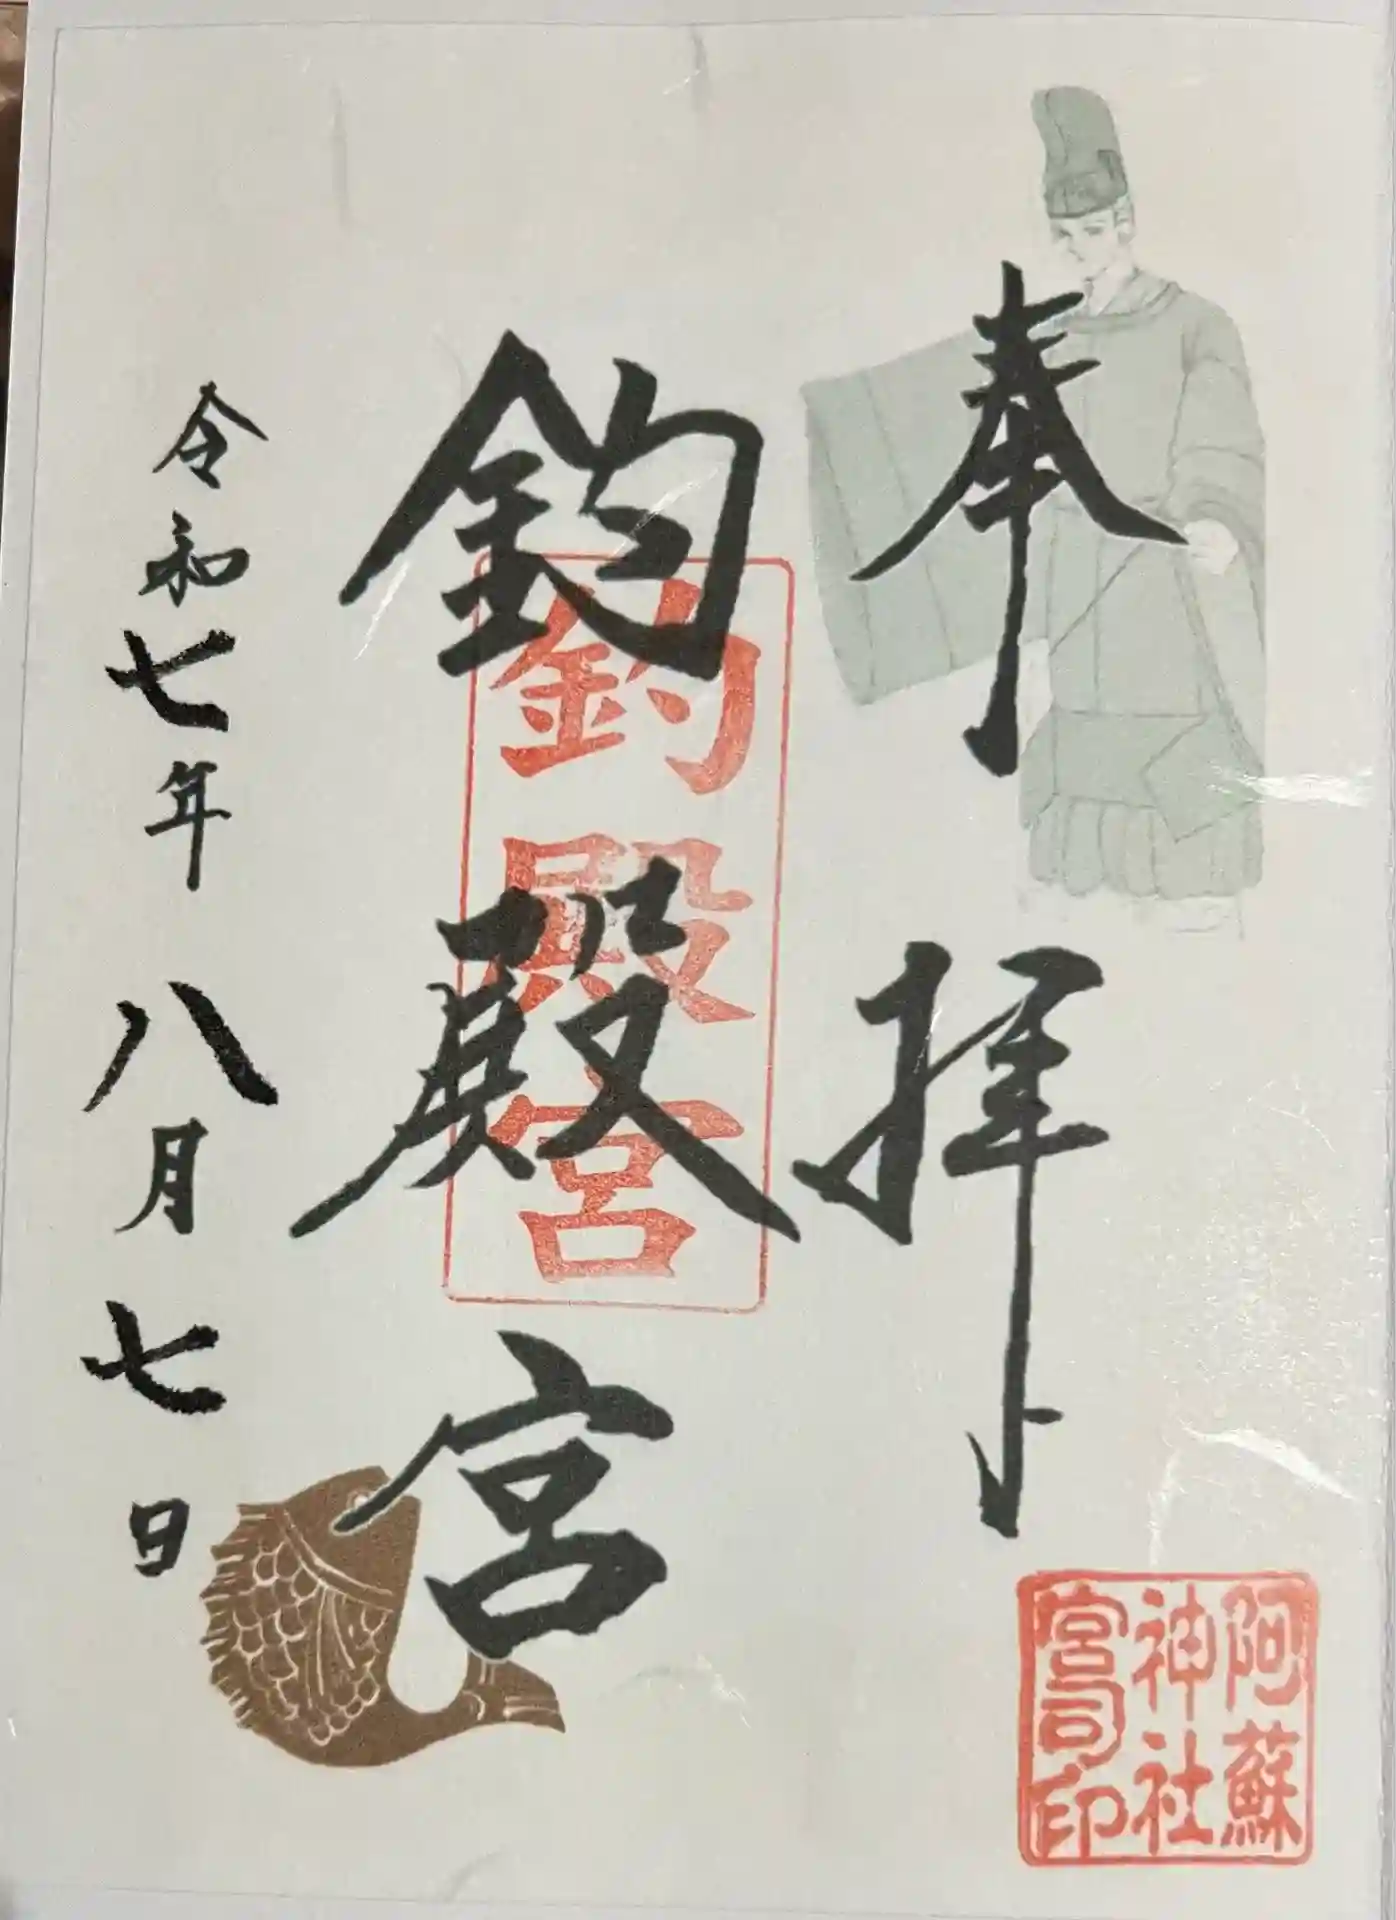 奉拝
釣殿宮
釣殿宮
令和七年八月七日
阿蘇
神社
宮司印